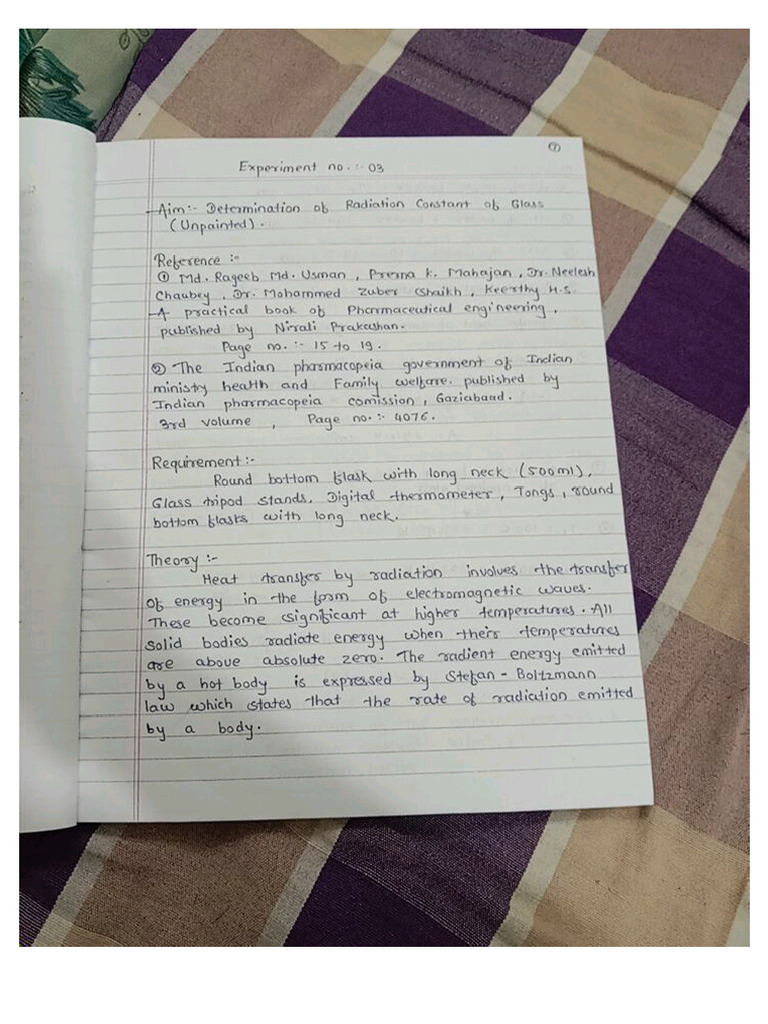 ①
Experiment no. :- 03
Aim:- Determination of Radiation Constant of Glass
(Unpainted).
Reference :-
① Md. Rageeb Md. Usman, Prerna K. Mahajan, Dr. Neelesh
Chaubey, Dr. Mohammed Zuber Shaikh, Keerthy H.S.
A practical book of Pharmaceutical engineering,
published by Nirali Prakashan.
Page no. :- 15 to 19.
② The Indian pharmacopeia government of Indian
ministry health and Family welfare. published by
Indian pharmacopeia comission, Gaziabaad.
3rd volume, Page no. :- 4076.
Requirement :-
Round bottom flask with long neck (500ml),
Glass tripod stands, Digital thermometer, Tongs, round
bottom flasks with long neck.
Theory :-
Heat transfer by radiation involves the transfer
of energy in the form of electromagnetic waves.
These become significant at higher temperatures. All
solid bodies radiate energy when their temperatures
are above absolute zero. The radient energy emitted
by a hot body is expressed by Stefan - Boltzmann
law which states that the rate of radiation emitted
by a body.